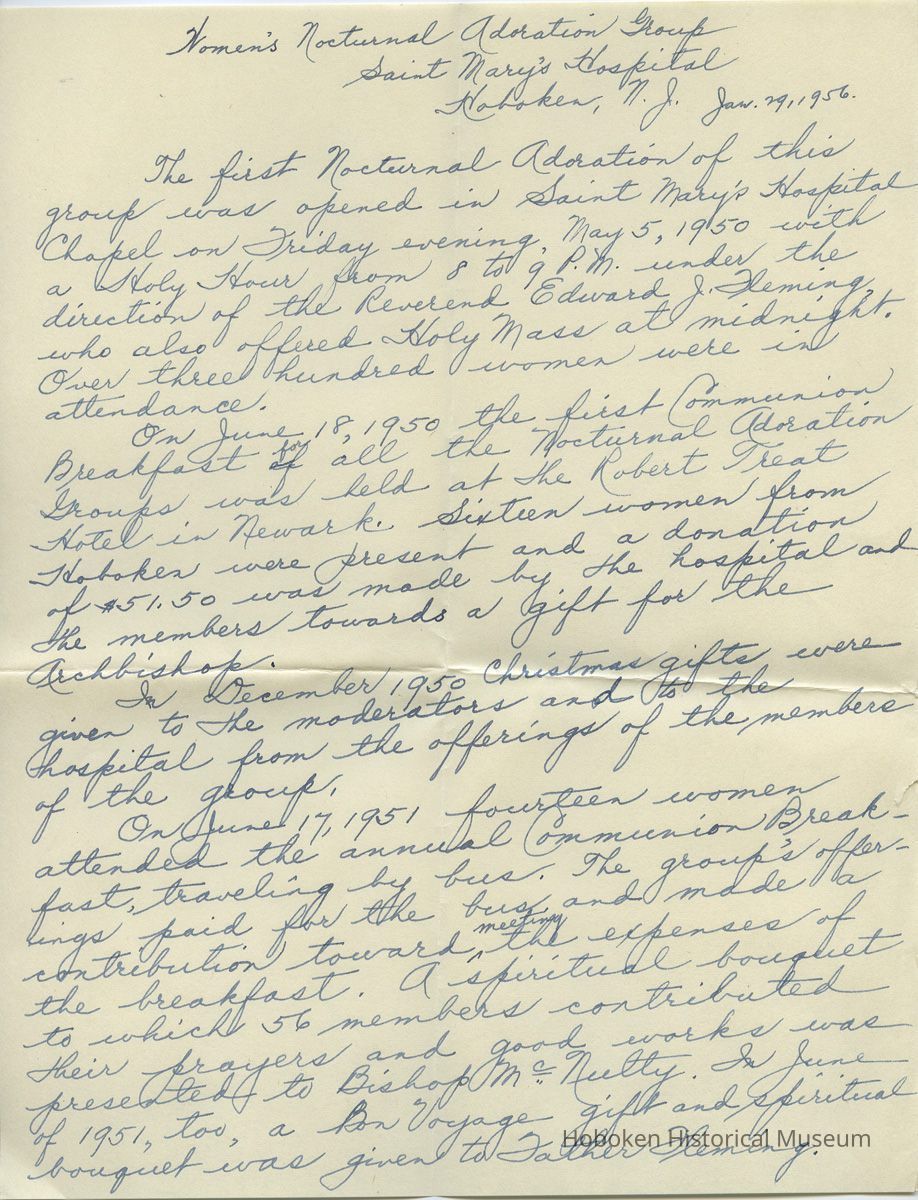 Women's Nocturnal Adoration Group
Saint Mary's Hospital
Hoboken, N. J. Jan. 29, 1956.
The first Nocturnal Adoration of this
group was opened in Saint Mary's Hospital
Chapel on Friday evening, May 5, 1950 with
a Holy Hour from 8 to 9 P.M. under the
direction of the Reverend Edward J. Fleming,
who also offered Holy Mass at midnight.
Over three hundred women were in
attendance.
On June 18, 1950 the first Communion
Breakfast for all the Nocturnal Adoration
Groups was held at the Robert Treat
Hotel in Newark. Sixteen women from
Hoboken were present and a donation
of $51.50 was made by the hospital and
the members towards a gift for the
Archbishop.
In December 1950 Christmas gifts were
given to the moderators and to the
hospital from the offerings of the members
of the group.
On June 17, 1951 fourteen women
attended the annual Communion Break-
fast, traveling by bus. The group's offer-
ings paid for the bus and made a
contribution toward meeting the expenses of
the breakfast. A spiritual bouquet
to which 56 members contributed
their prayers and good works was
presented to Bishop McNulty. In June
of 1951, too, a Bon Voyage gift and spiritual
bouquet was given to Father Fleming.
Hoboken Historical Museum